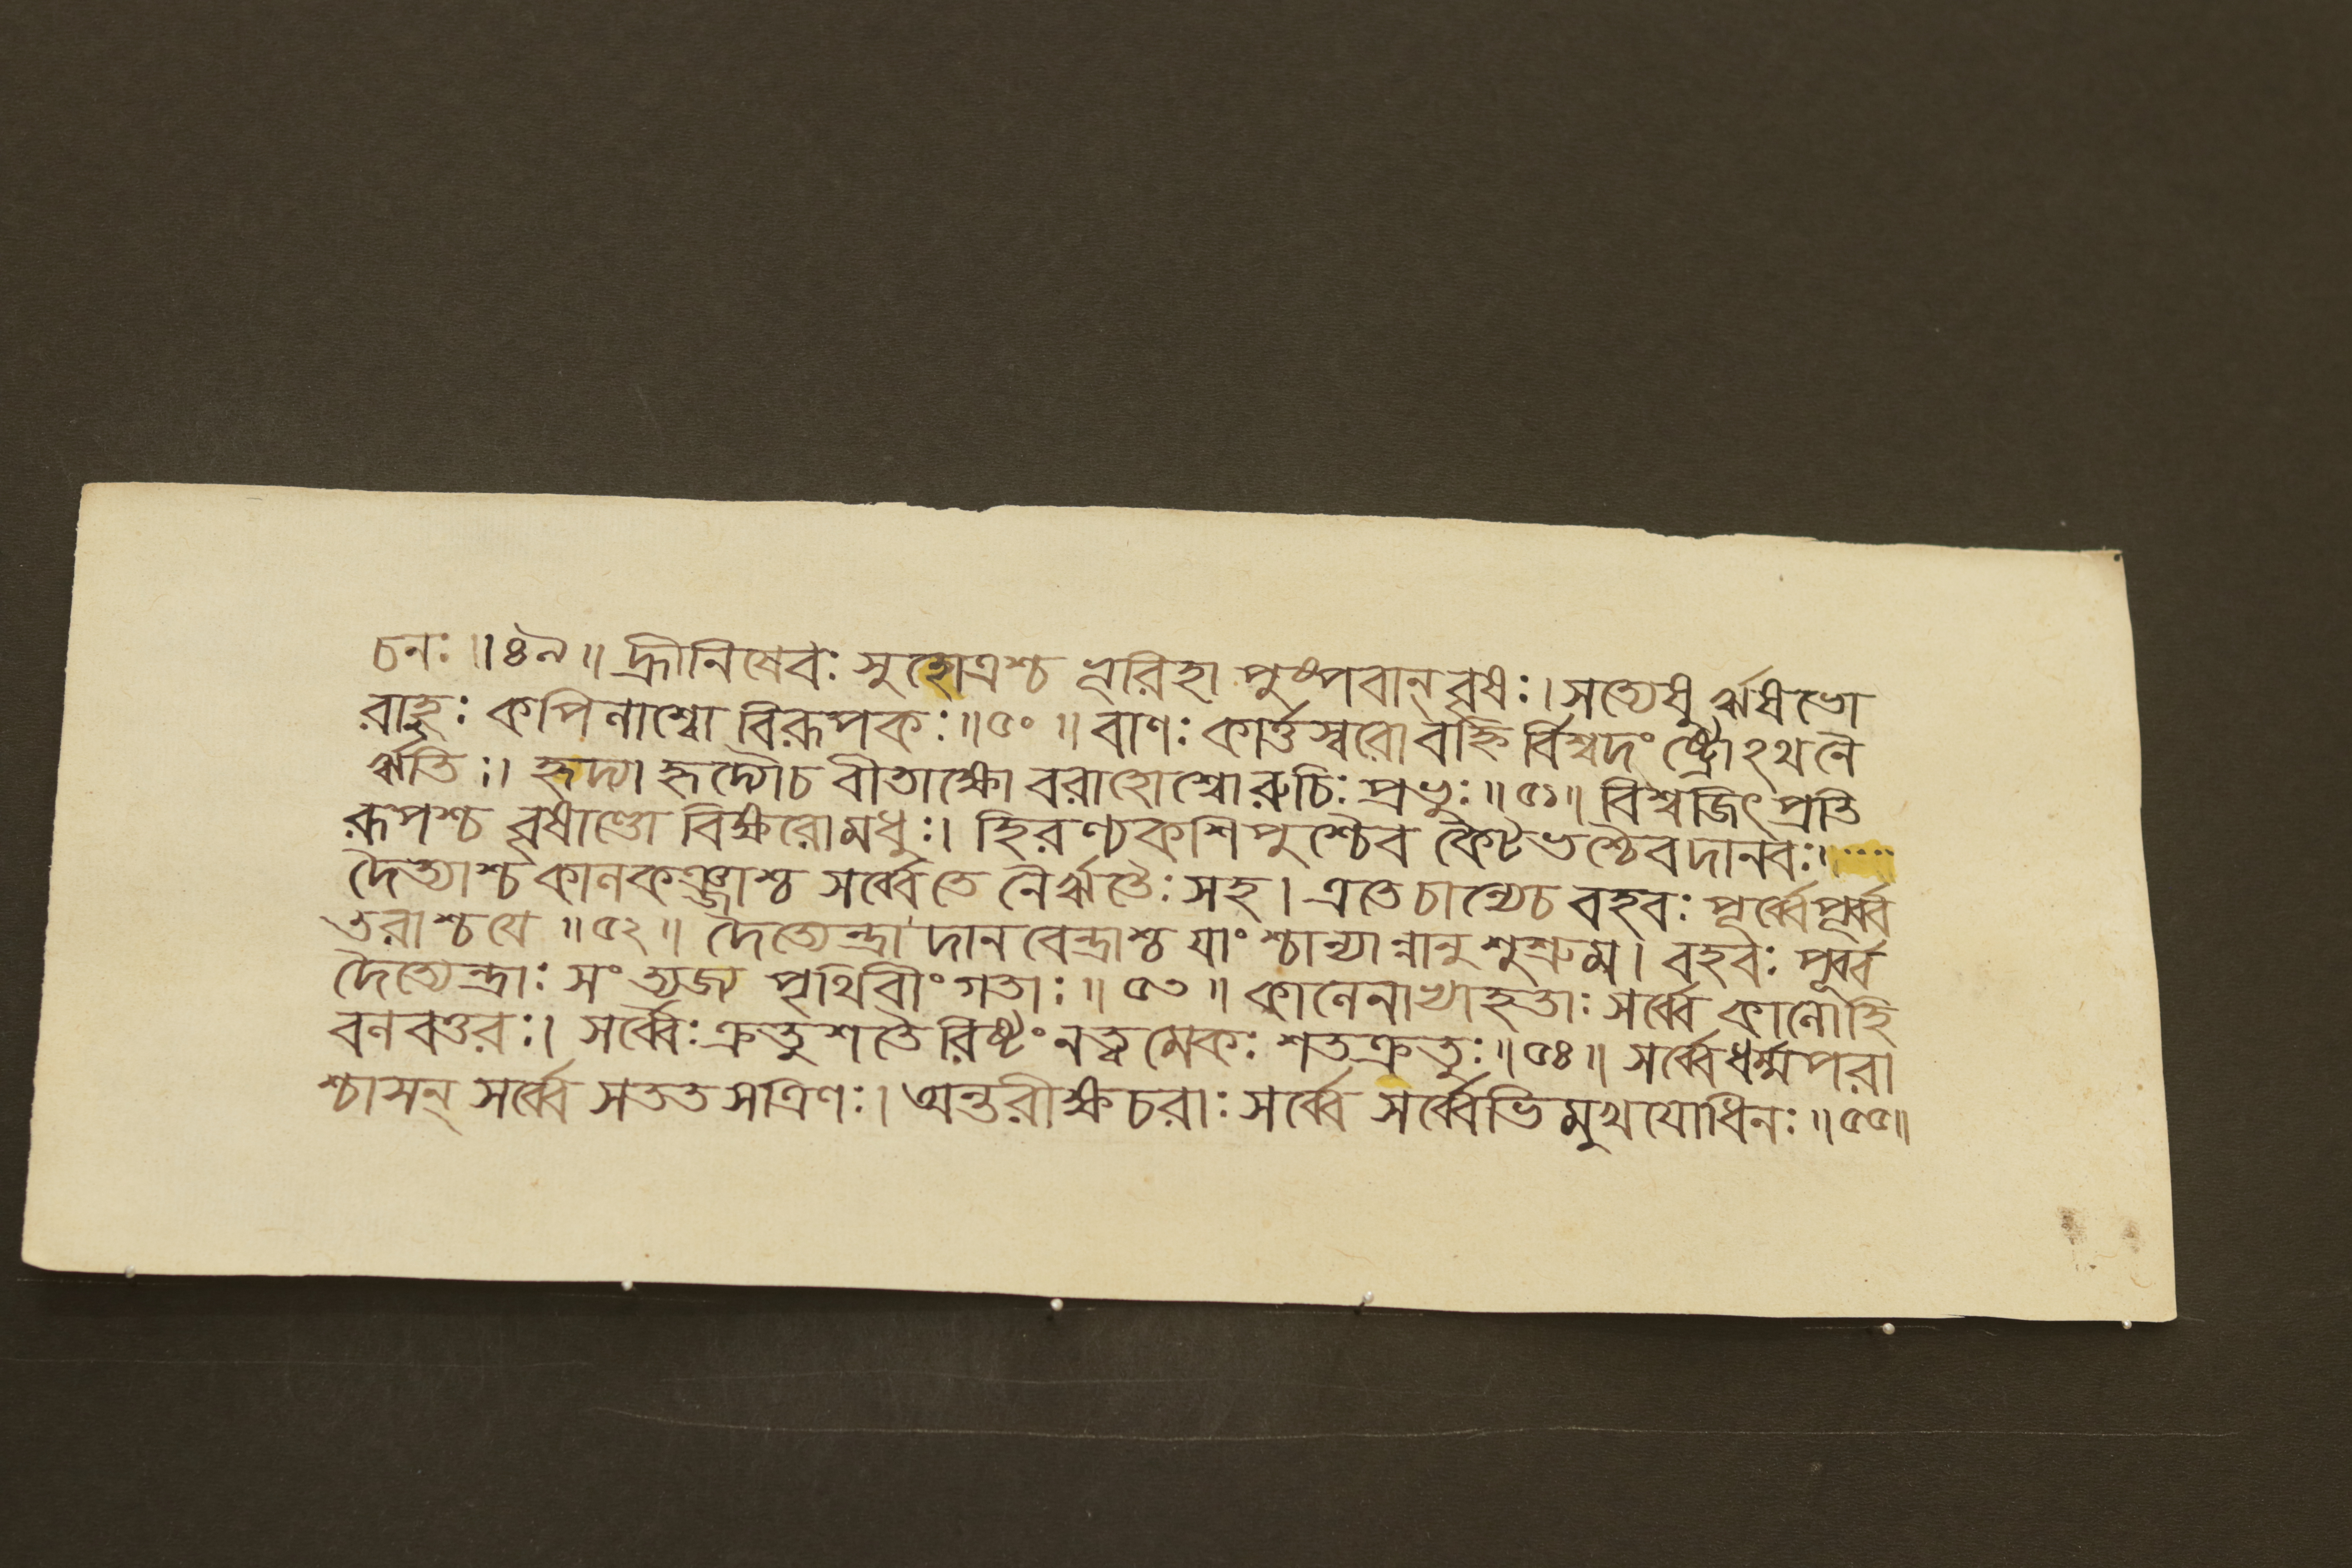 চনঃ॥৪৯॥ হ্রীনিষেবঃ সুহোত্রশ্চ ভূরিহা পুষ্পবান্ বৃষঃ। সত্যেষু র্ঋষভো
রাহুঃ কপিনাশ্বো বিরূপকঃ॥৫০॥ বাণঃ কার্ত্তস্বরো বহ্নি র্বিশ্বদংষ্ট্রোঽথনৈ
র্ঋতিঃ। হৃদ্যা হৃদ্যৌচ বীতাক্ষো বরাহোশ্বোরুচিঃ প্রভুঃ॥৫১॥ বিশ্বজিৎ প্রতি
রূপশ্চ বৃষাণ্ডো বিক্ষরোমধুঃ। হিরণ্যকশিপুশ্চৈব কৈটভশ্চৈবদানবঃ।
দৈত্যাশ্চকানকঞ্জাশ্চ সর্ব্বেতে নৈর্ঋতৈঃ সহ। এতেচান্যেচ বহবঃ পূর্ব্বেপূর্ব্ব
তরাশ্চযে॥৫২॥ দৈত্যেন্দ্রা দানবেন্দ্রাশ্চ যাংশ্চান্যান্নানুশুশ্রুম। বহবঃ পূর্ব্ব
দৈত্যেন্দ্রাঃ সংত্যজ্য পৃথিবীংগতাঃ॥৫৩॥ কানেনাখাহৃতাঃ সর্ব্বে কানোহি
বনবত্তরঃ। সর্ব্বৈঃক্রতুশতৈরিষ্টংনত্বমেকঃ শতক্রতুঃ॥৫৪॥ সর্ব্বেধর্ম্মপরা
শ্চাসন্ সর্ব্বে সততসত্রিণঃ। অন্তরীক্ষচরাঃ সর্ব্বে সর্ব্বেভিমুখযোধিনঃ॥৫৫॥